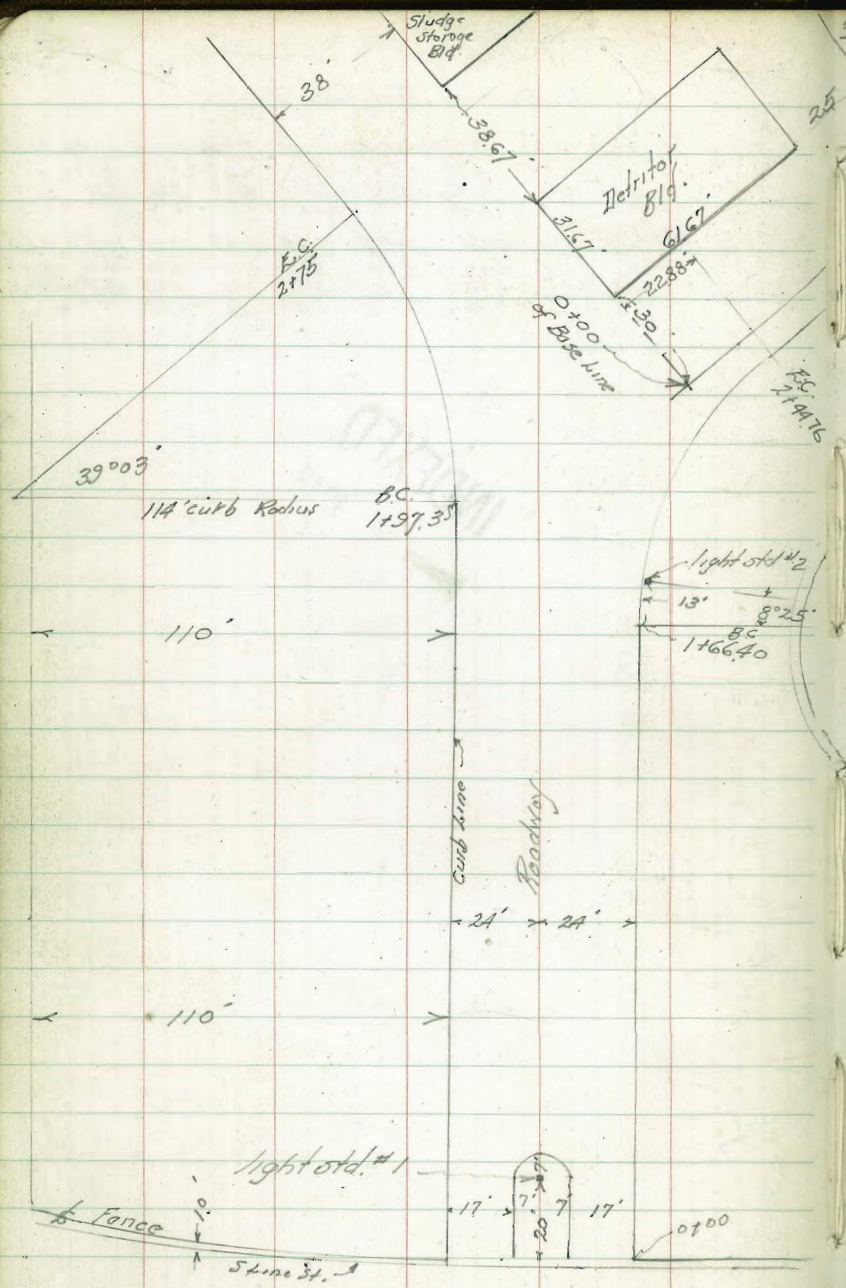 Sludge
Storage
Bld.
38'
38.67'
25
Detritor
Bld.
31.67'
61.67'
22.88'
30
0+00
of Base Line
E.C.
2+75
E.C.
2+44.76
39°03'
114' curb Radius
B.C.
1+97.35
light std #2
13'
8°25'
B.C.
1+66.40
110'
Curb Line
Roadway
24'
24'
110'
light std. #1
17'
7'
7'
7'
17'
20'
0+00
Fence
10'
S Line St.